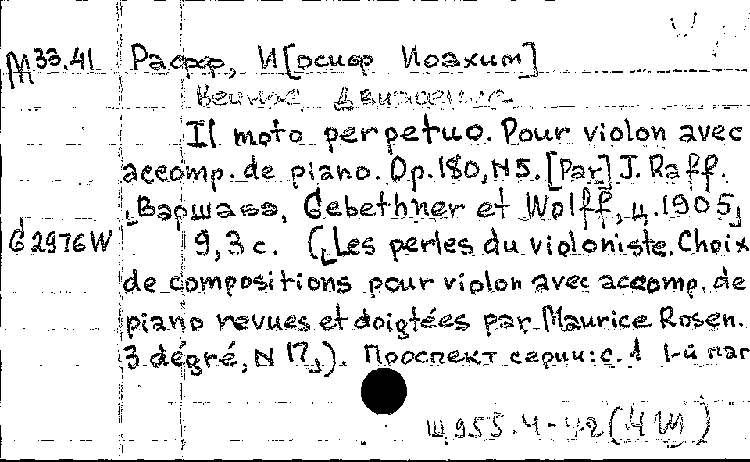 М33.41 Рафф, И[осиф Иоахим]
Вечное движение
Il moto perpetuo. Pour violon avec
accomp. de piano. Op.180, N5. [Par] J. Raff.
Варшава, Gebethner et Wolff, ц.1905
G2976W 9,3 с. (Les perles du violoniste. Choix
de compositions pour violon avec accomp. de
piano revues et doigtées par Maurice Rosen.
3 dégré, N 17). Проспект серии: с. 1 1-й паг
Ш955.4-42 (4Ш)